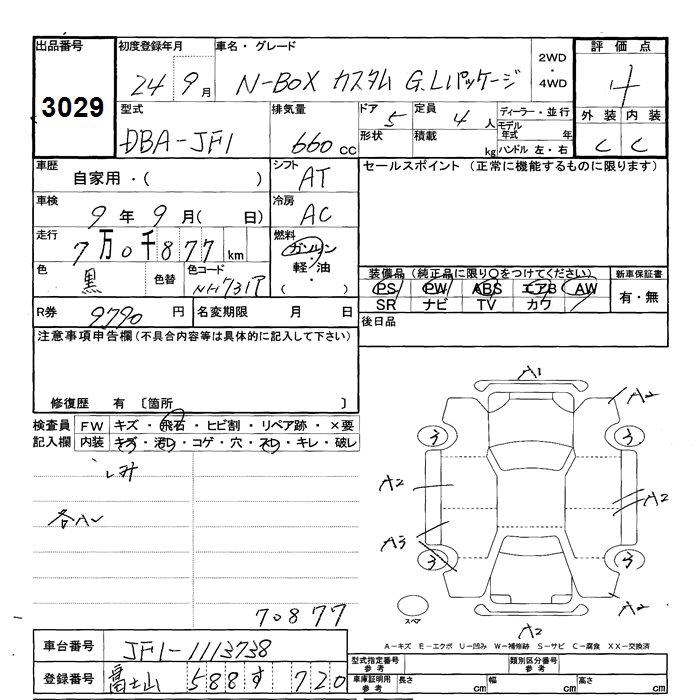 出品番号 初度登録年月 車名・グレード 2WD・4WD 評価点
3029 24 9月 N-BOX カスタム G.Lパッケージ 4
型式 排気量 ドア 5 定員 4人 ディーラー・並行 外装 内装
DBA-JF1 660cc 形状 積載 kg モデル年式 年 C C
ハンドル 左・右
車歴 自家用・( ) シフト AT セールスポイント (正常に機能するものに限ります)
車検 9年9月( 日) 冷房 AC
走行 7万0千877km 燃料 ガソリン
軽・油
( )
色 黒 色替 色コード NH731P
装備品 (純正品に限り○をつけてください) 新車保証書
PS PW ABS エアB AW 有・無
SR ナビ TV カワ
R券 9790円 名変期限 月 日 後日品
注意事項申告欄(不具合内容等は具体的に記入して下さい)
修復歴 有 〔箇所 〕
検査員 FW キズ・飛石・ヒビ割・リペア跡・×要
記入欄 内装 キズ・汚レ・コゲ・穴・スレ・キレ・破レ
シミ
各AU
70877
A1
A2
3 3
A2
A2
A3
3 3
スペア
A2
A-キズ E-エクボ U-凹み W-補修跡 S-サビ C-腐食 XX-交換済
車台番号 JF1-1113738
登録番号 富士山 588 す 720
型式指定番号 参考 類別区分番号 参考
車庫証明用 参考 長さ cm 幅 cm 高さ cm